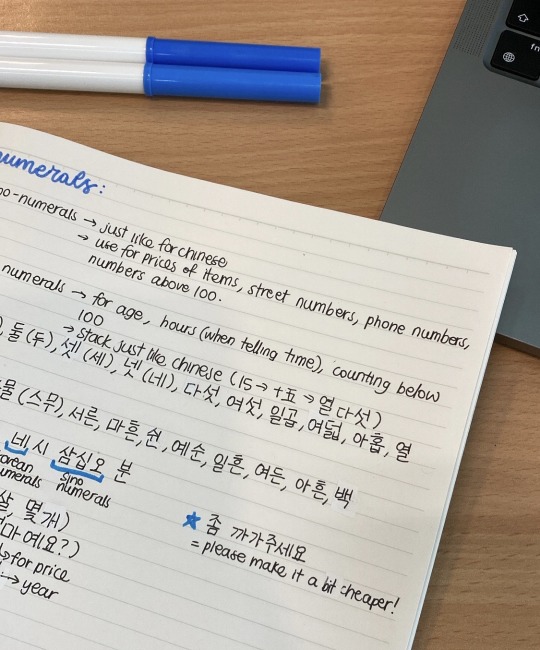 numerals:
no-numerals → just like for chinese
→ use for prices of items, street numbers, phone numbers,
numbers above 100.
numerals → for age, hours (when telling time), counting below
100
→ stack just like chinese (15 → 十五 → 열다섯)
), 둘 (두), 셋 (세), 넷 (네), 다섯, 여섯, 일곱, 여덟, 아홉, 열
물 (스무), 서른, 마흔, 쉰, 예순, 일흔, 여든, 아흔, 백
네 시 삼십오 분
orean sino
umerals numerals
살 몇개)
마예요?)
→ for price
→ year
좀 까가주세요
= please make it a bit cheaper!
fn